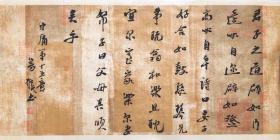 君子之道辟如行
遠必自邇辟如登
高必自卑詩曰妻子
好合如鼓瑟琴兄
弟既翕和樂且耽
宜爾室家樂爾妻
帑子曰父母其順
矣乎
中庸第十五章